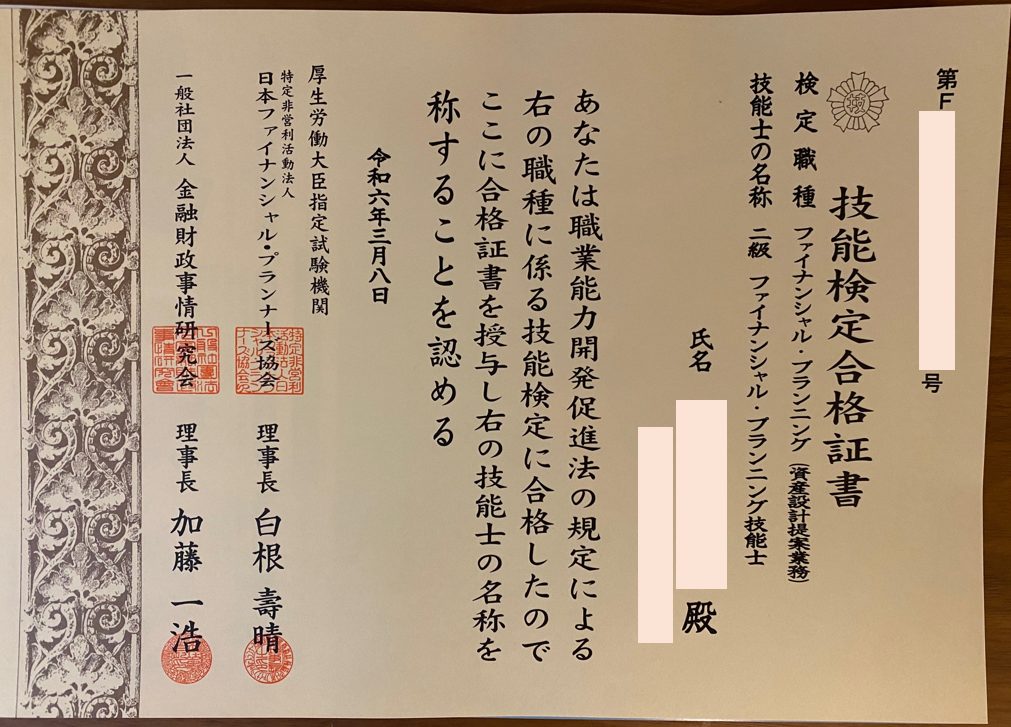 第F
号
技能検定合格証書
検定職種 ファイナンシャル・プランニング(資産設計提案業務)
技能士の名称 二級 ファイナンシャル・プランニング技能士
氏名
殿
あなたは職業能力開発促進法の規定による
右の職種に係る技能検定に合格したので
ここに合格証書を授与し右の技能士の名称を
称することを認める
令和六年三月八日
厚生労働大臣指定試験機関
特定非営利活動法人
日本ファイナンシャル・プランナーズ協会 理事長 白根 壽晴
一般社団法人 金融財政事情研究会 理事長 加藤 一浩